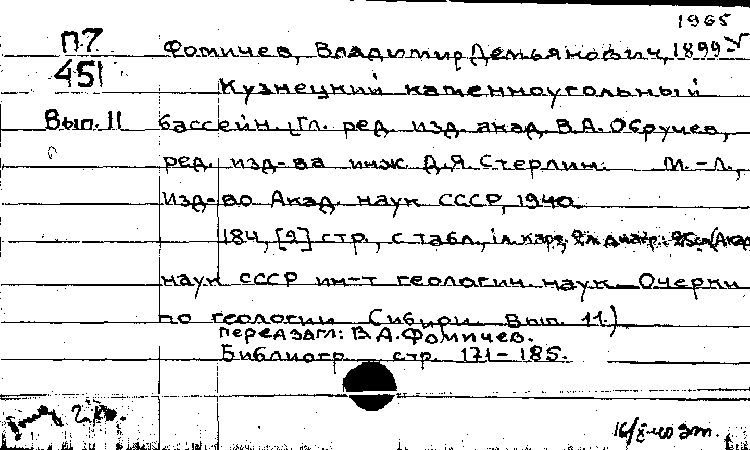 1965
П7
451
Вып. 11
Фомичев, Владимир Демьянович, 1899-
Кузнецкий каменноугольный
бассейн. [Гл. ред. изд. акад. В.А. Обручев,
ред. изд-ва инж. Д.Я. Стерлин. М.-Л.,
Изд-во Акад. наук СССР, 1940.
184, [2] стр., с табл., 1 л. карт, 2 л. диагр. 25 см (Акад
наук СССР ин-т геологич. наук. Очерки
по геологии Сибири. Вып. 11.)
Перед загл: В.А. Фомичев.
Библиогр. стр. 171-185.
2
16/X-40 эт.